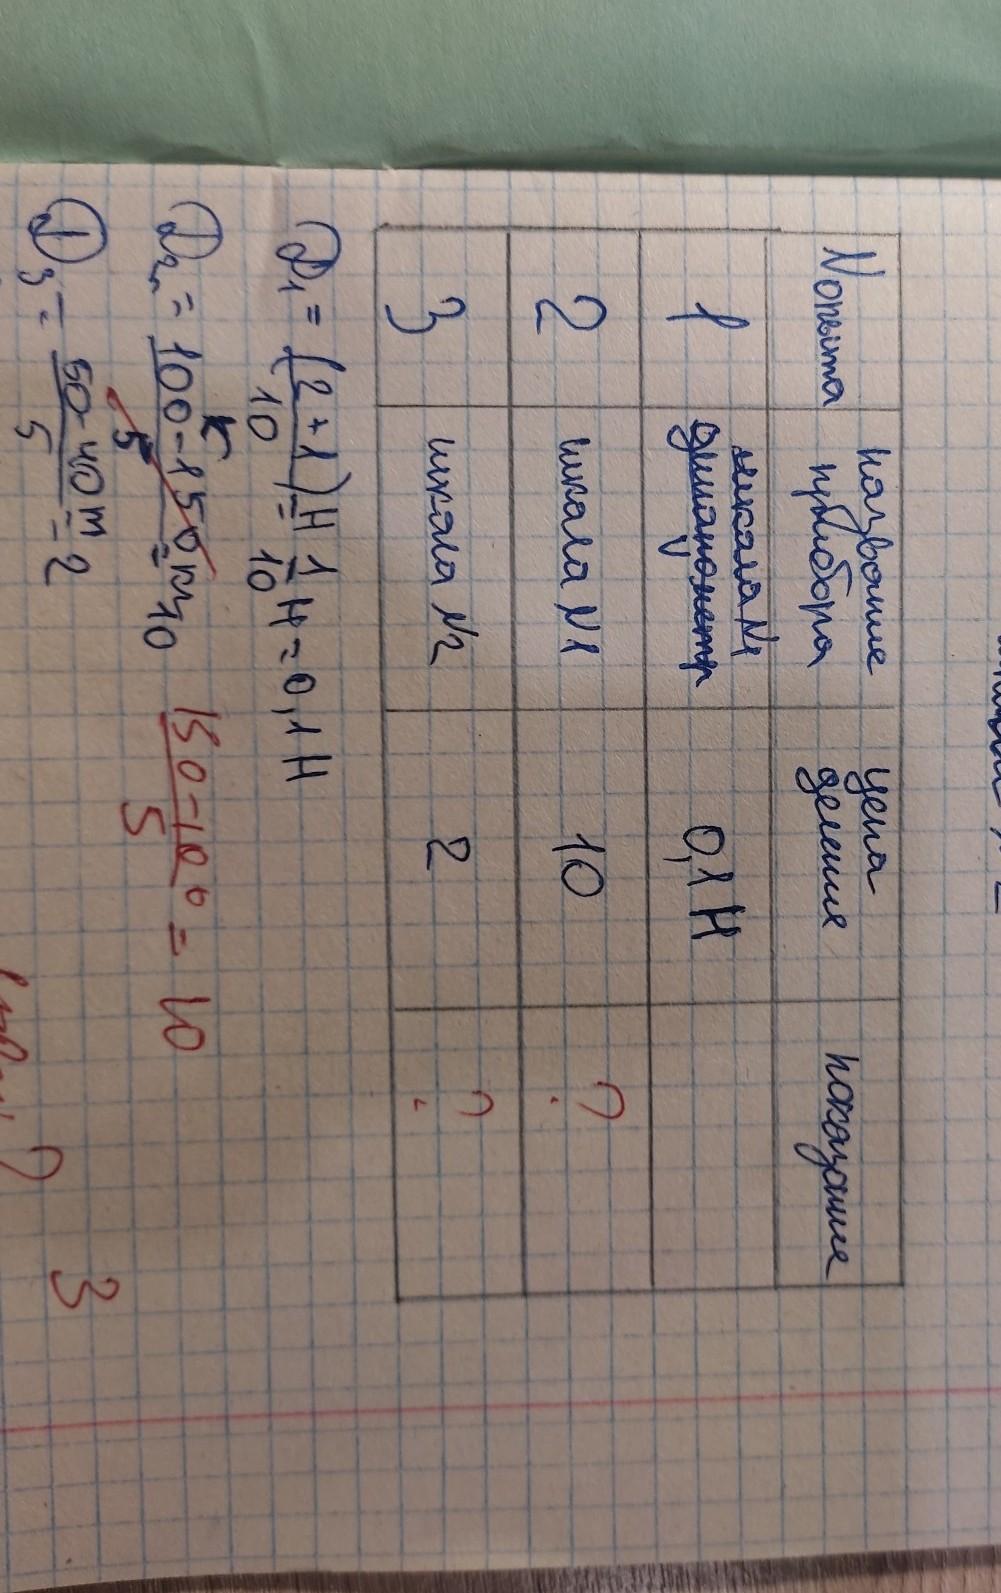 № опыта название прибора цена деления показание
1 шкала №1 динамометр 0,1 Н
2 шкала №1 10 ?
3 шкала №2 2 ?
D₁ = (2+1)Н/10 = 1/10 Н = 0,1 Н
= 100-150/5 = 10 150-100/5 = 10
D₃ = 50-40m/5 = 2
? 3